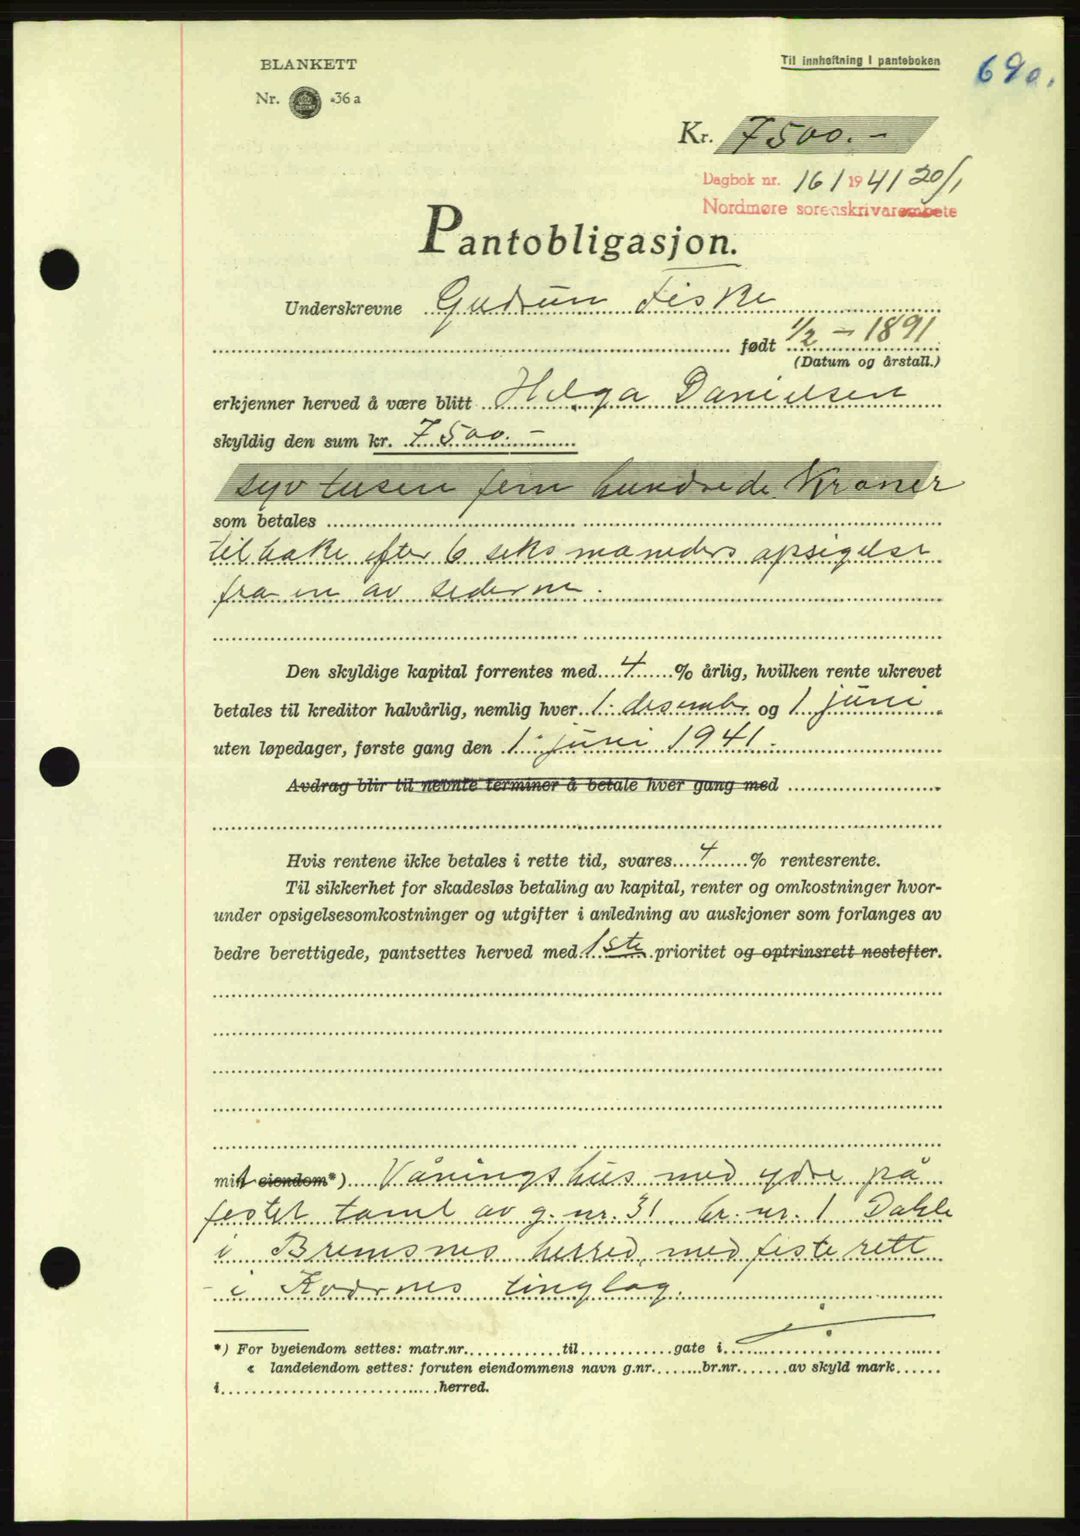 BLANKETT
Til innheftning i panteboken
690.
Nr. 36a
Kr. 7500.-
Dagbok nr. 161 1941 20/1
Nordmøre sorenskrivarembete
Pantobligasjon.
Underskrevne Gudrun Fiske
født 1/2 - 1891
(Datum og årstall.)
erkjenner herved å være blitt Helga Danielsen
skyldig den sum kr. 7500.-
syv tusen fem hundrede Kroner
som betales
tilbake efter 6 seks maneders opsigelse
fra en av sederne.
Den skyldige kapital forrentes med 4 % årlig, hvilken rente ukrevet
betales til kreditor halvårlig, nemlig hver 1. desembr og 1 juni
uten løpedager, første gang den 1. juni 1941.
Avdrag blir til nevnte terminer å betale hver gang med
Hvis rentene ikke betales i rette tid, svares 4 % rentesrente.
Til sikkerhet for skadesløs betaling av kapital, renter og omkostninger hvor-
under opsigelsesomkostninger og utgifter i anledning av auksjoner som forlanges av
bedre berettigede, pantsettes herved med 1ste prioritet og optrinsrett nestefter.
mit eiendom*) Våningshus med ydre på
festet tomt av g. nr. 31 br. nr. 1 Dahle
i Bremsnes herred, med feste rett
i Kvernes tinglag.
*) For byeiendom settes: matr.nr. til gate i
« landeiendom settes: foruten eiendommens navn g.nr. br.nr. av skyld mark
i herred.